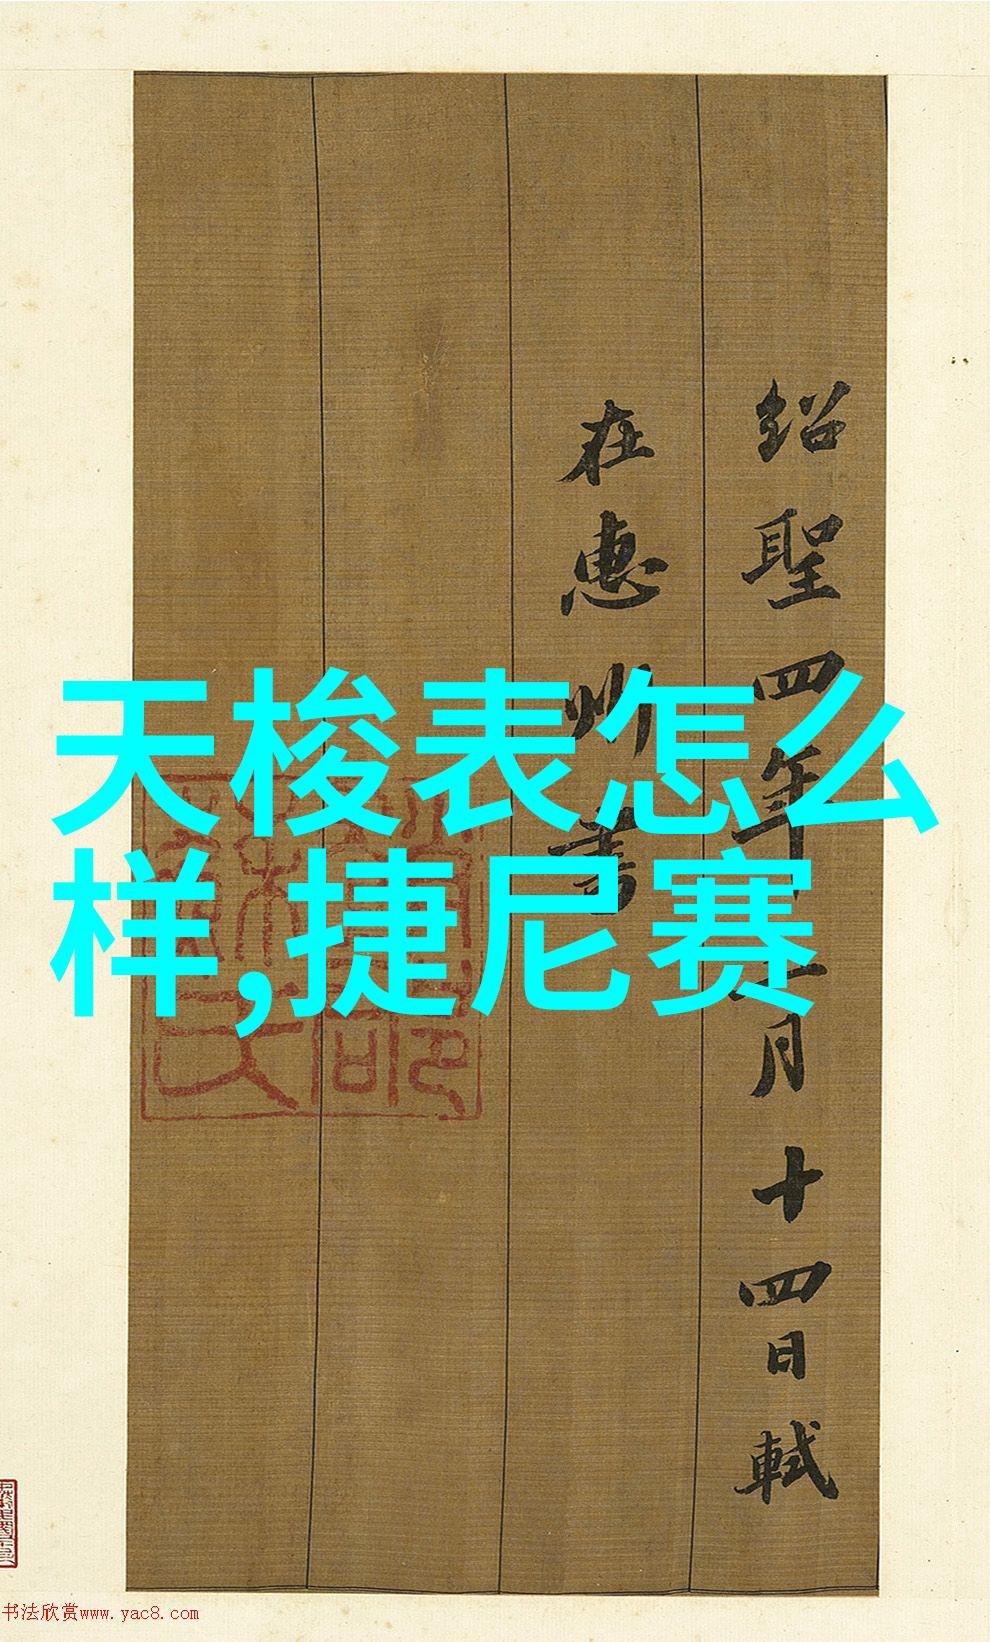 天梭表怎么
样,捷尼赛
绍聖四年十二月十四日軾
在惠州書
书法欣赏www.yac8.com